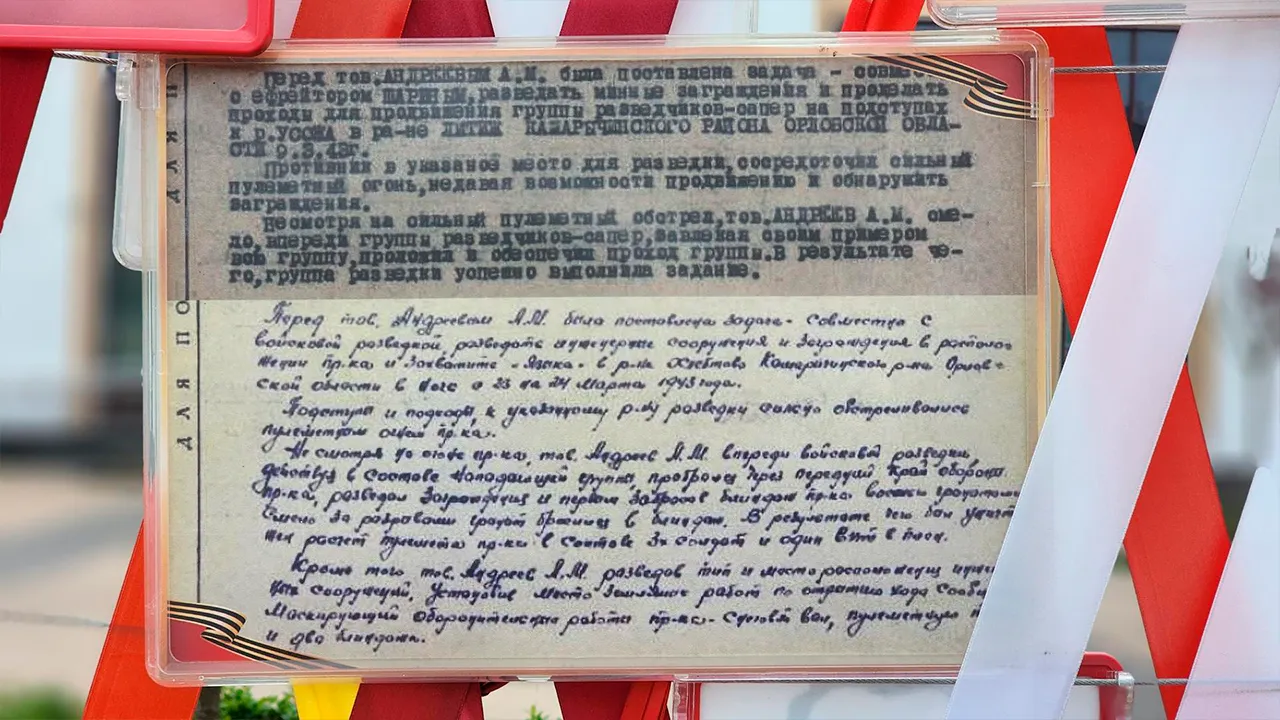 Перед тов.АНДРЕЕВЫМ А.М. была поставлена задача - совме
с ефрейтором ШАРИНЫМ,разведать минные заграждения и проделать
проходы для продвижения группы разведчиков-сапер на подступах
к р.УССЖА в ра-не ЛИТИЖ КАМАРИЧИНСКОГО РАЙОНА ОРЛОВСКОЙ ОБЛА-
СТИ 9.3.43г.
Противник в указаное место для разведки,сосредоточил сильный
пулеметный огонь,недавая возможности продвижению и обнаружить
заграждения.
Несмотря на сильный пулеметный обстрел,тов.АНДРЕЕВ А.М. сме-
ло,впереди группы разведчиков-сапер,завлекая своим примером
всю группу,проложил и обеспечил проход группы.В результате че-
го,группа разведки успешно выполнила задание.
Перед тов. Андреевым А.М. была поставлена задача - совместно с
войсковой разведкой разведать инженерные сооружения и заграждения в располо
жении пр-ка и захватить "Языка" в р-не Камаричинского р-на Орлов-
ской области в ночь с 23 на 24 марта 1943 года.
Подступы и подходы к указанному р-ну разведки сильно обстреливались
пулеметным огнем пр-ка.
Не смотря на огонь пр-ка, тов. Андреев А.М. впереди войсковой разведки,
действуя в составе нападающей группы, пробрался через передний край обороны
пр-ка, разведал заграждения и первым забросал блиндаж пр-ка гранатами
Смело за разрывами гранат бросился в блиндаж. В результате чего был уничто
жен расчет пулемета пр-ка в составе 3х солдат и один взят в плен.
Кроме того тов. Андреев А.М. разведал тип и место расположения инжен
ных сооружений, установил место земляных работ по отрытию хода сооб
Маскирующий оборонительные работы пр-ка - снеговой вал, пулеметную
и два блиндажа.
ДЛЯ ПО
ДЛЯ П